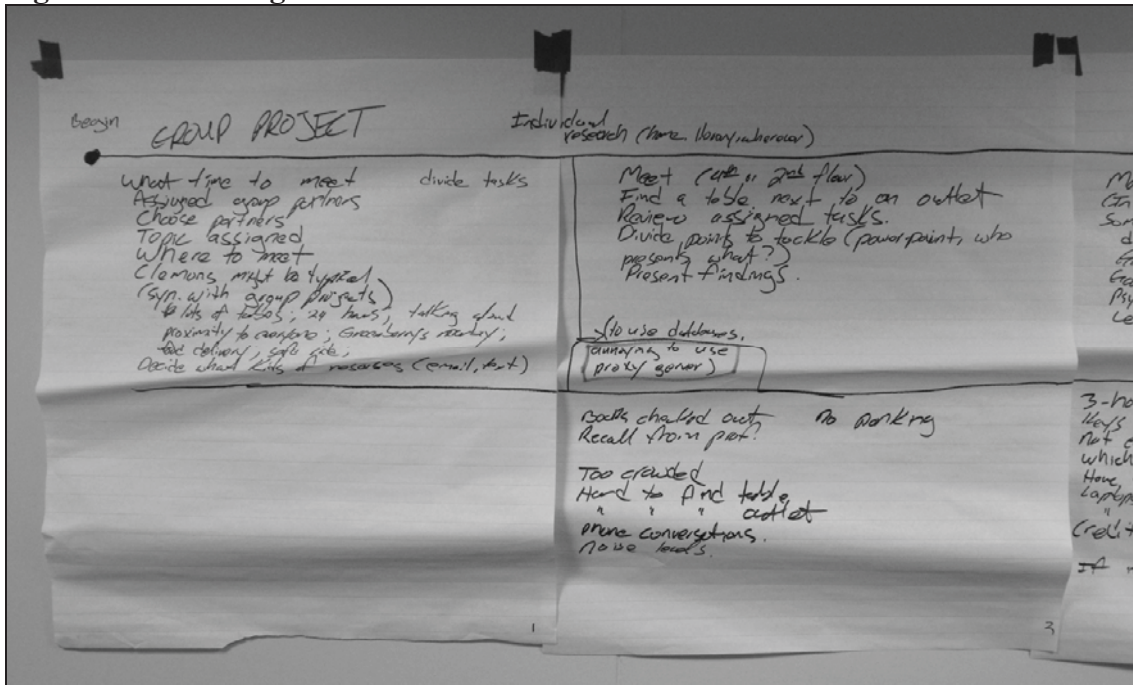 Begin
GROUP PROJECT
Individual
research (home, library, wherever)
What time to meet divide tasks
Assigned group partners
Choose partners
Topic assigned
Where to meet
Clemons might be typical
(syn. with group projects)
lots of tables; 24 hours; talking aloud
proximity to everyone; Greenberrys nearby;
food delivery; safe ride;
Decide what kinds of resources (email, text)
Meet ( 2nd floor)
Find a table next to an outlet
Review assigned tasks.
Divide points to tackle (powerpoint, who
presents what?)
Present findings.
(to use databases,
annoying to use
proxy server)
Books checked out no parking
Recall from prof.
Too crowded
Hard to find table
" " " outlet
phone conversations.
noise levels.
1
3
3-ho
Keys
not
which
Have
Laptops
"
Credit
If